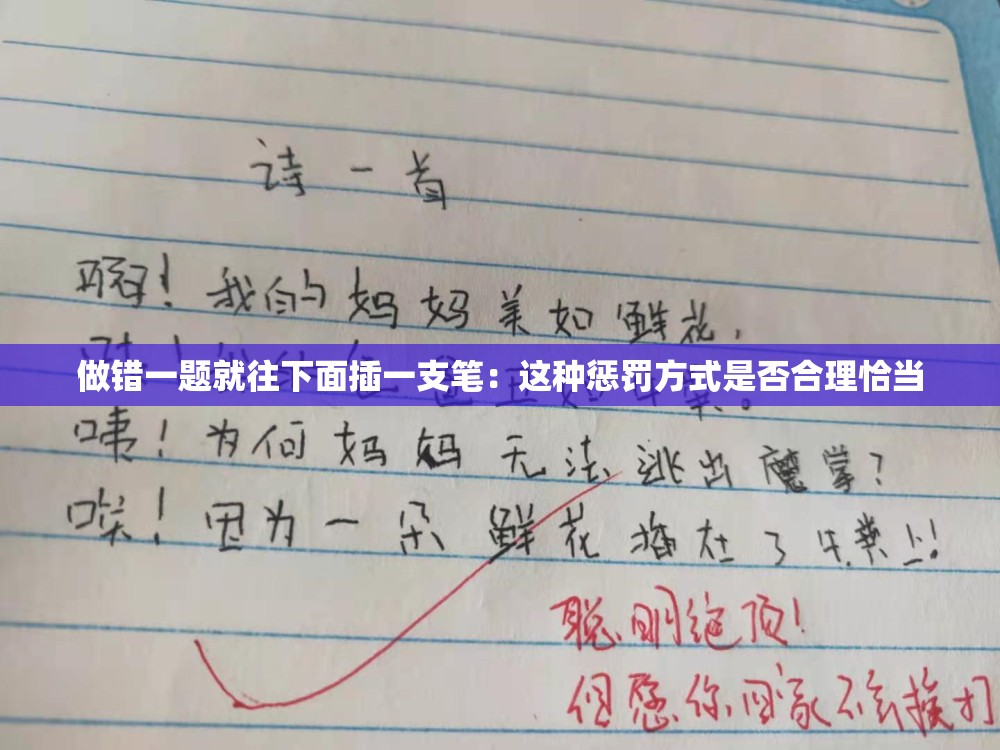 诗一首
啊！我的妈妈美如鲜花，
做错一题就往下面插一支笔：这种惩罚方式是否合理恰当
咦！为何妈妈无法逃出魔掌？
唉！因为一朵鲜花插在了牛粪上！
聪明绝顶！
但愿你回家不会挨打